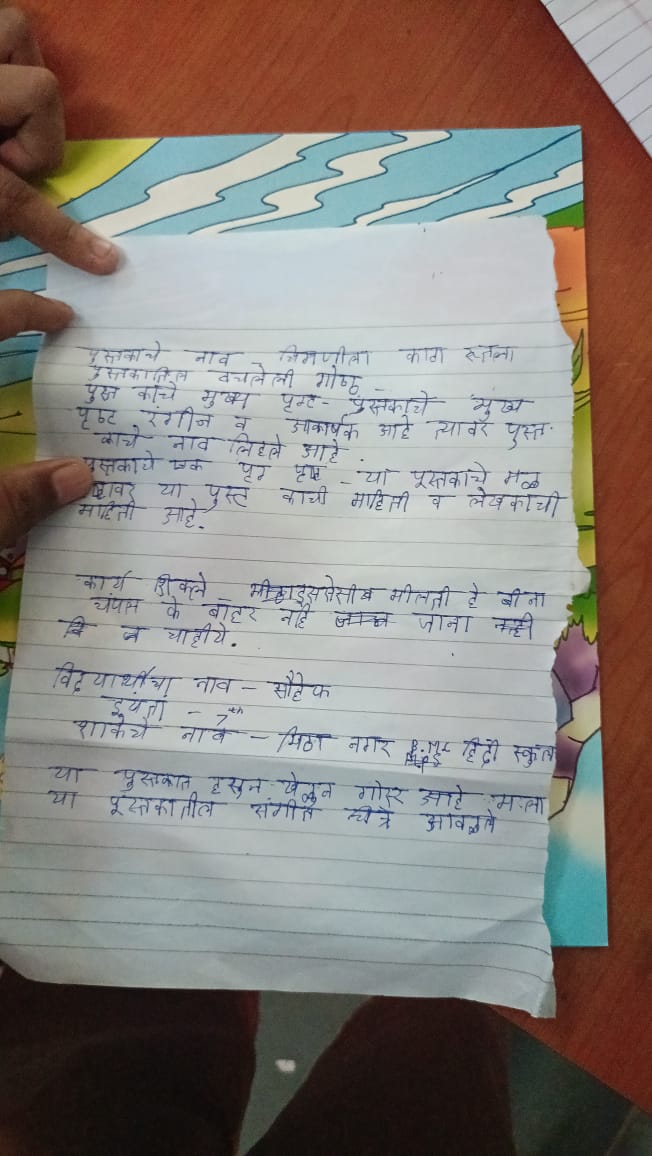 पुस्तकाचे नाव चिमणीला काटा रूतला
पुस्तकातिल वचलेली गोष्ठ -
पुस्त काचे मुख्य पृष्ट- पुस्तकाचे मुख्य
पृष्ट रंगीन व आकर्षक आहे त्यावर पुस्त-
काचे नाव लिहले आहे.
पुस्तकाचे पृष्ट - या पूस्तकाचे मळ
या पुस्त काची माहिती व लेखकाची
माहिती आहे.
कार्य शिकले - मीलती हे बीना
के बाहर नाही जाना नही
चाहीये.
विद्यार्थीचा नाव - सौहेफ
इयंता - 7th
शाळेचे नाव - मिठा नगर हिंदी स्कुल
या पुस्तकात हसुन खेळुन गोस्ट आहे मला
या पूस्तकातील संगीत चीत्रे आवळले